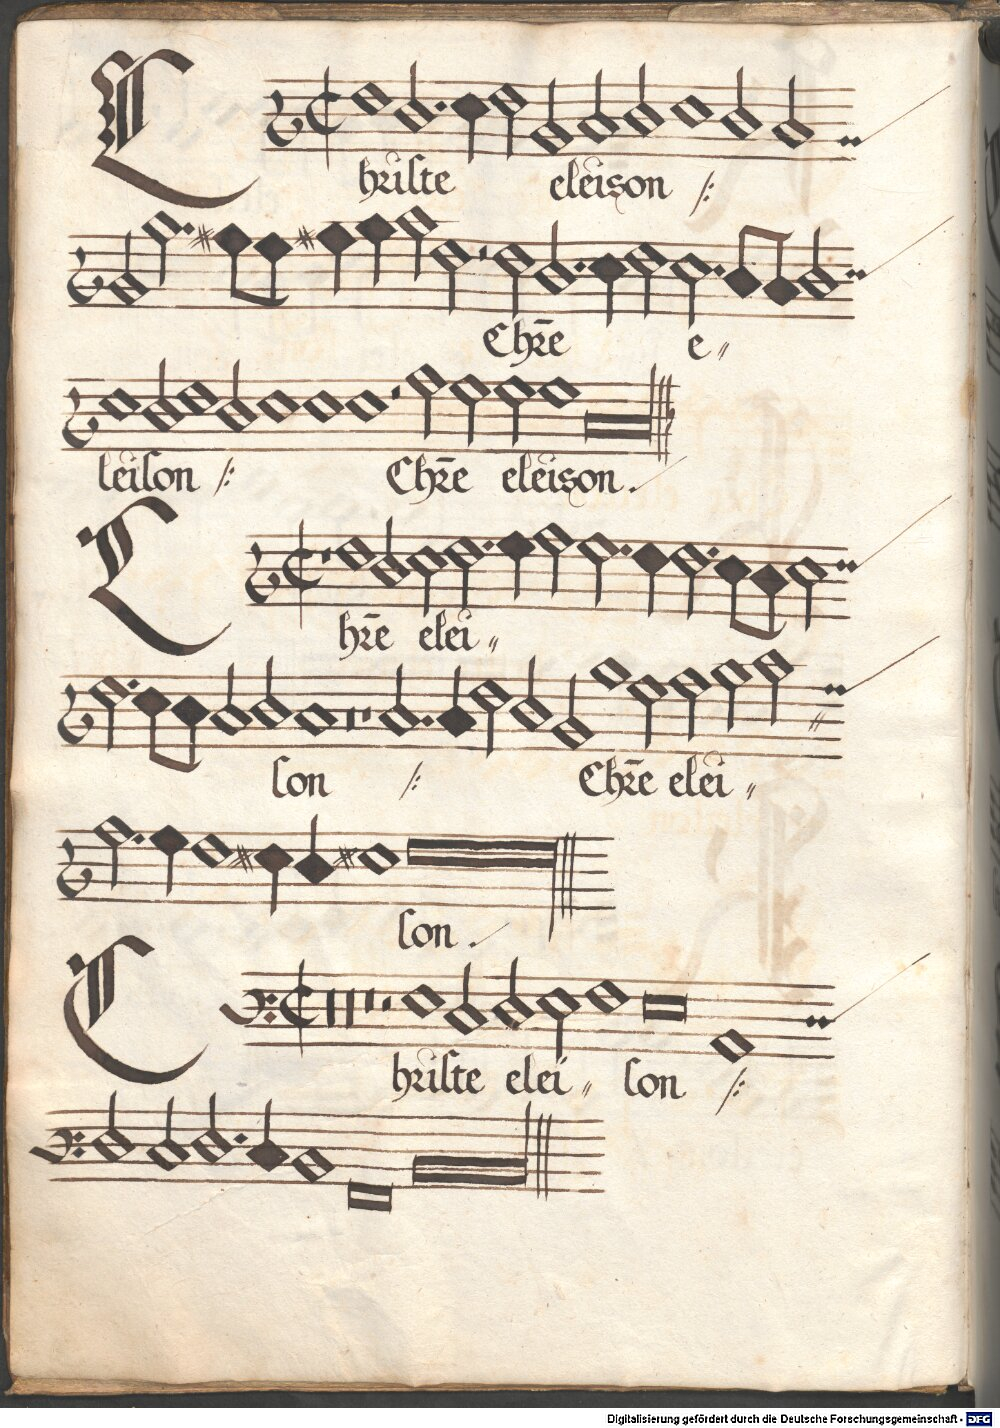 Christe eleison /:
Chr̄e e〃
leison /: Chr̄e eleison.
Chr̄e elei〃
son /: Chr̄e elei〃
son.
Christe elei〃 son /:
Digitalisierung gefördert durch die Deutsche Forschungsgemeinschaft - DFG